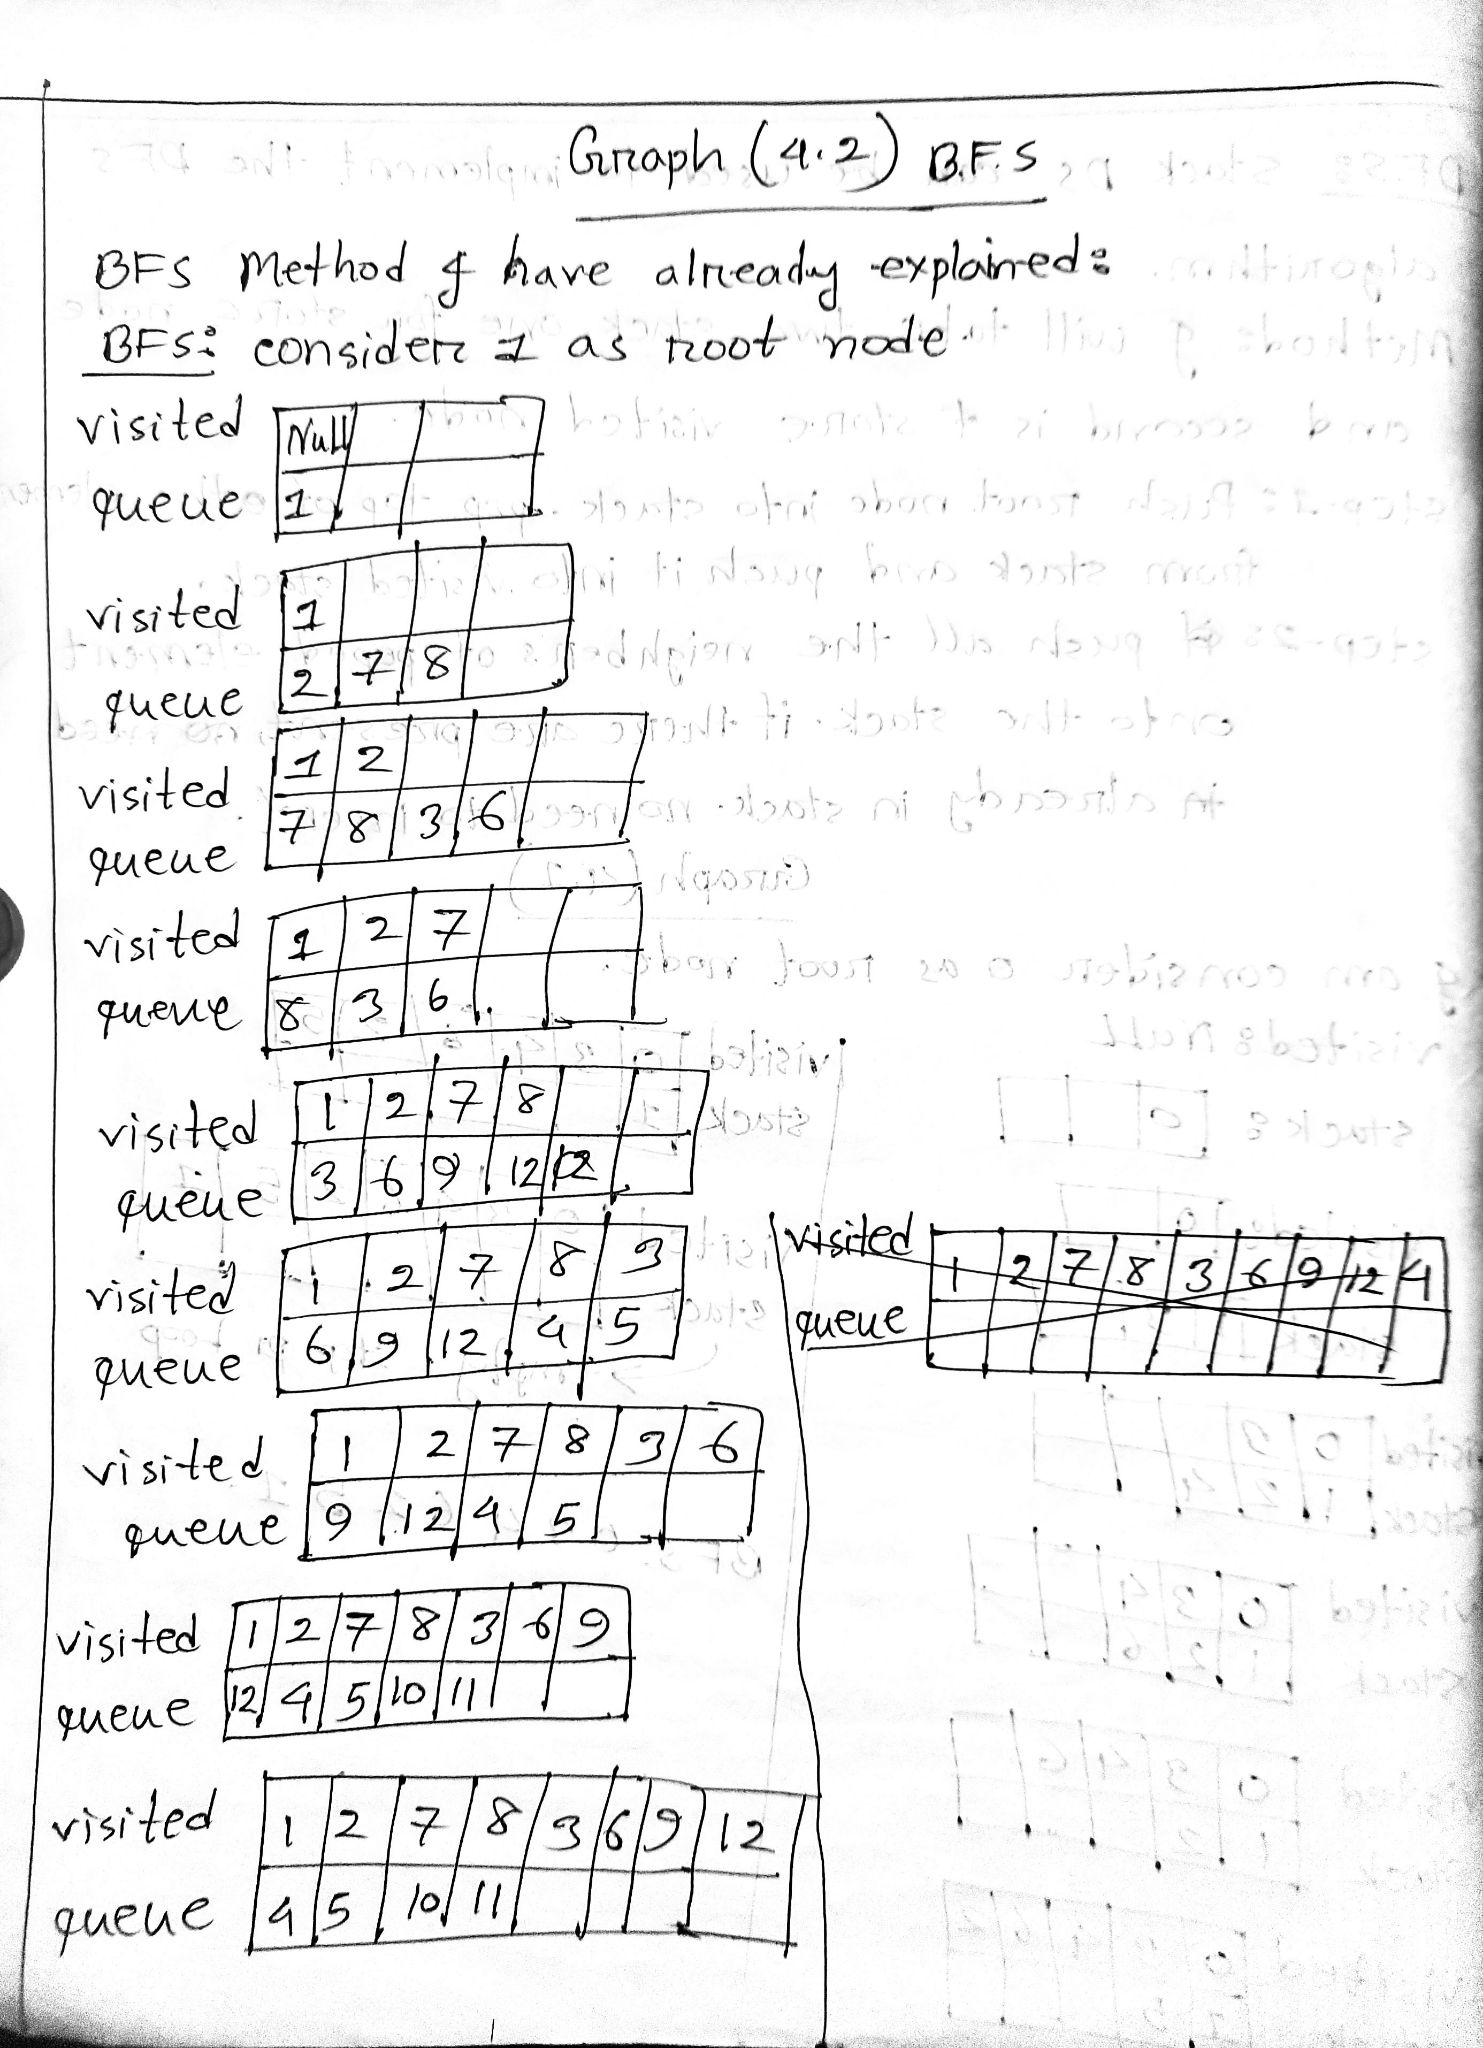 Graph (4.2) B.F.S
BFS Method I have already explained:
BFS: consider 1 as root node
visited Null
queue 1
visited 1
queue 2 7 8
visited 1 2
queue 7 8 3 6
visited 1 2 7
queue 8 3 6
visited 1 2 7 8
queue 3 6 9 12
visited 1 2 7 8 3
queue 6 9 12 4 5
visited 1 2 7 8 3 6
queue 9 12 4 5
visited 1 2 7 8 3 6 9
queue 12 4 5 10 11
visited 1 2 7 8 3 6 9 12
queue 4 5 10 11
visited 1 2 7 8 3 6 9 12 4
queue